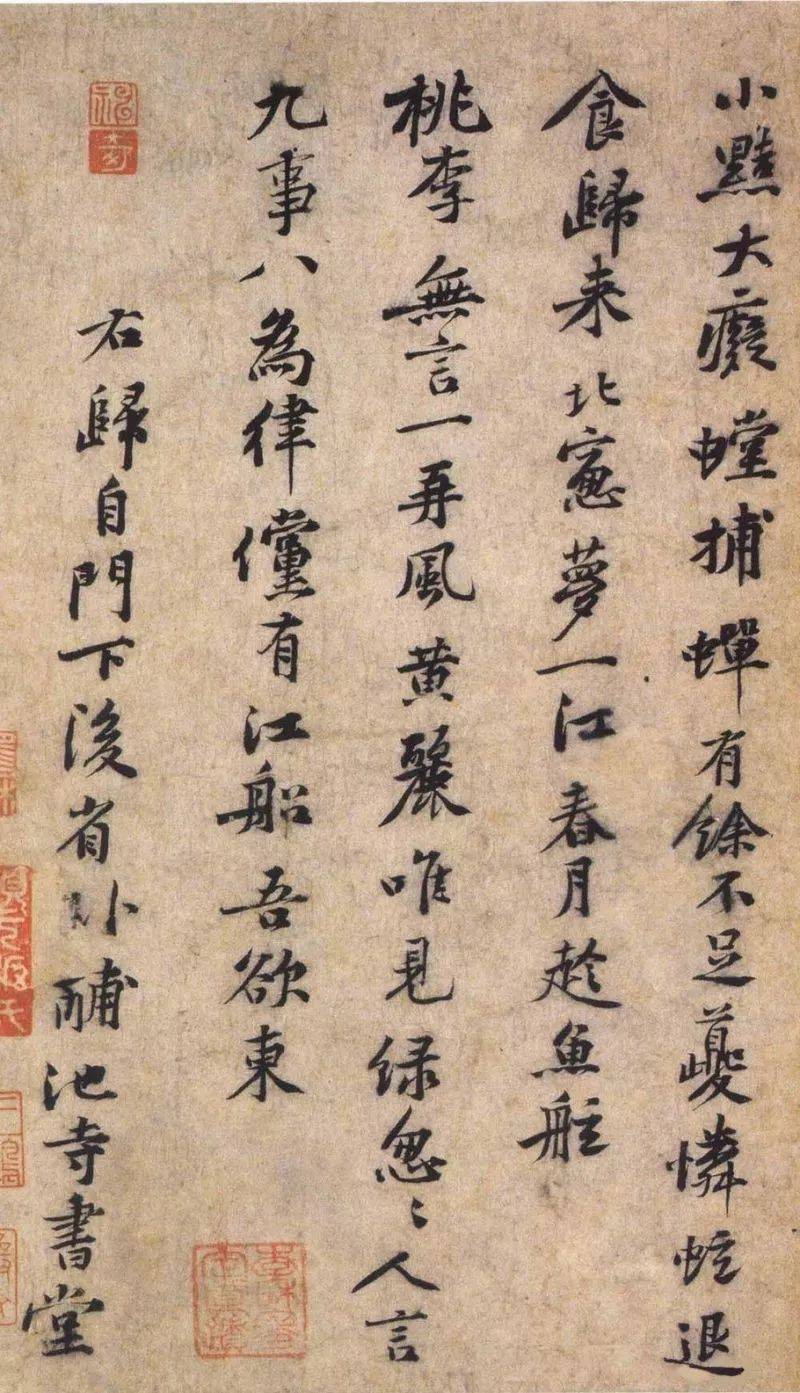 小黠大癡螳捕蟬有餘不足夔憐蚿退
食歸来北窻夢一江春月趂魚舡
桃李無言一再風黄麗唯見緑怱〻人言
九事八為律儻有江船吾欲東
右歸自門下後省卧酺池寺書堂